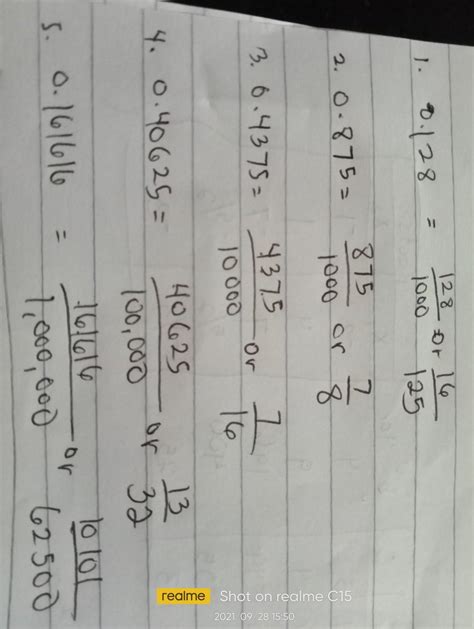 1. 0.128 = 128/1000 or 16/125
2. 0.875 = 875/1000 or 7/8
3. 0.4375 = 4375/10000 or 7/16
4. 0.40625 = 40625/100,000 or 13/32
5. 0.161616 = 161616/1,000,000 or 10101/62500
realme Shot on realme C15
2021.09.28 15:50